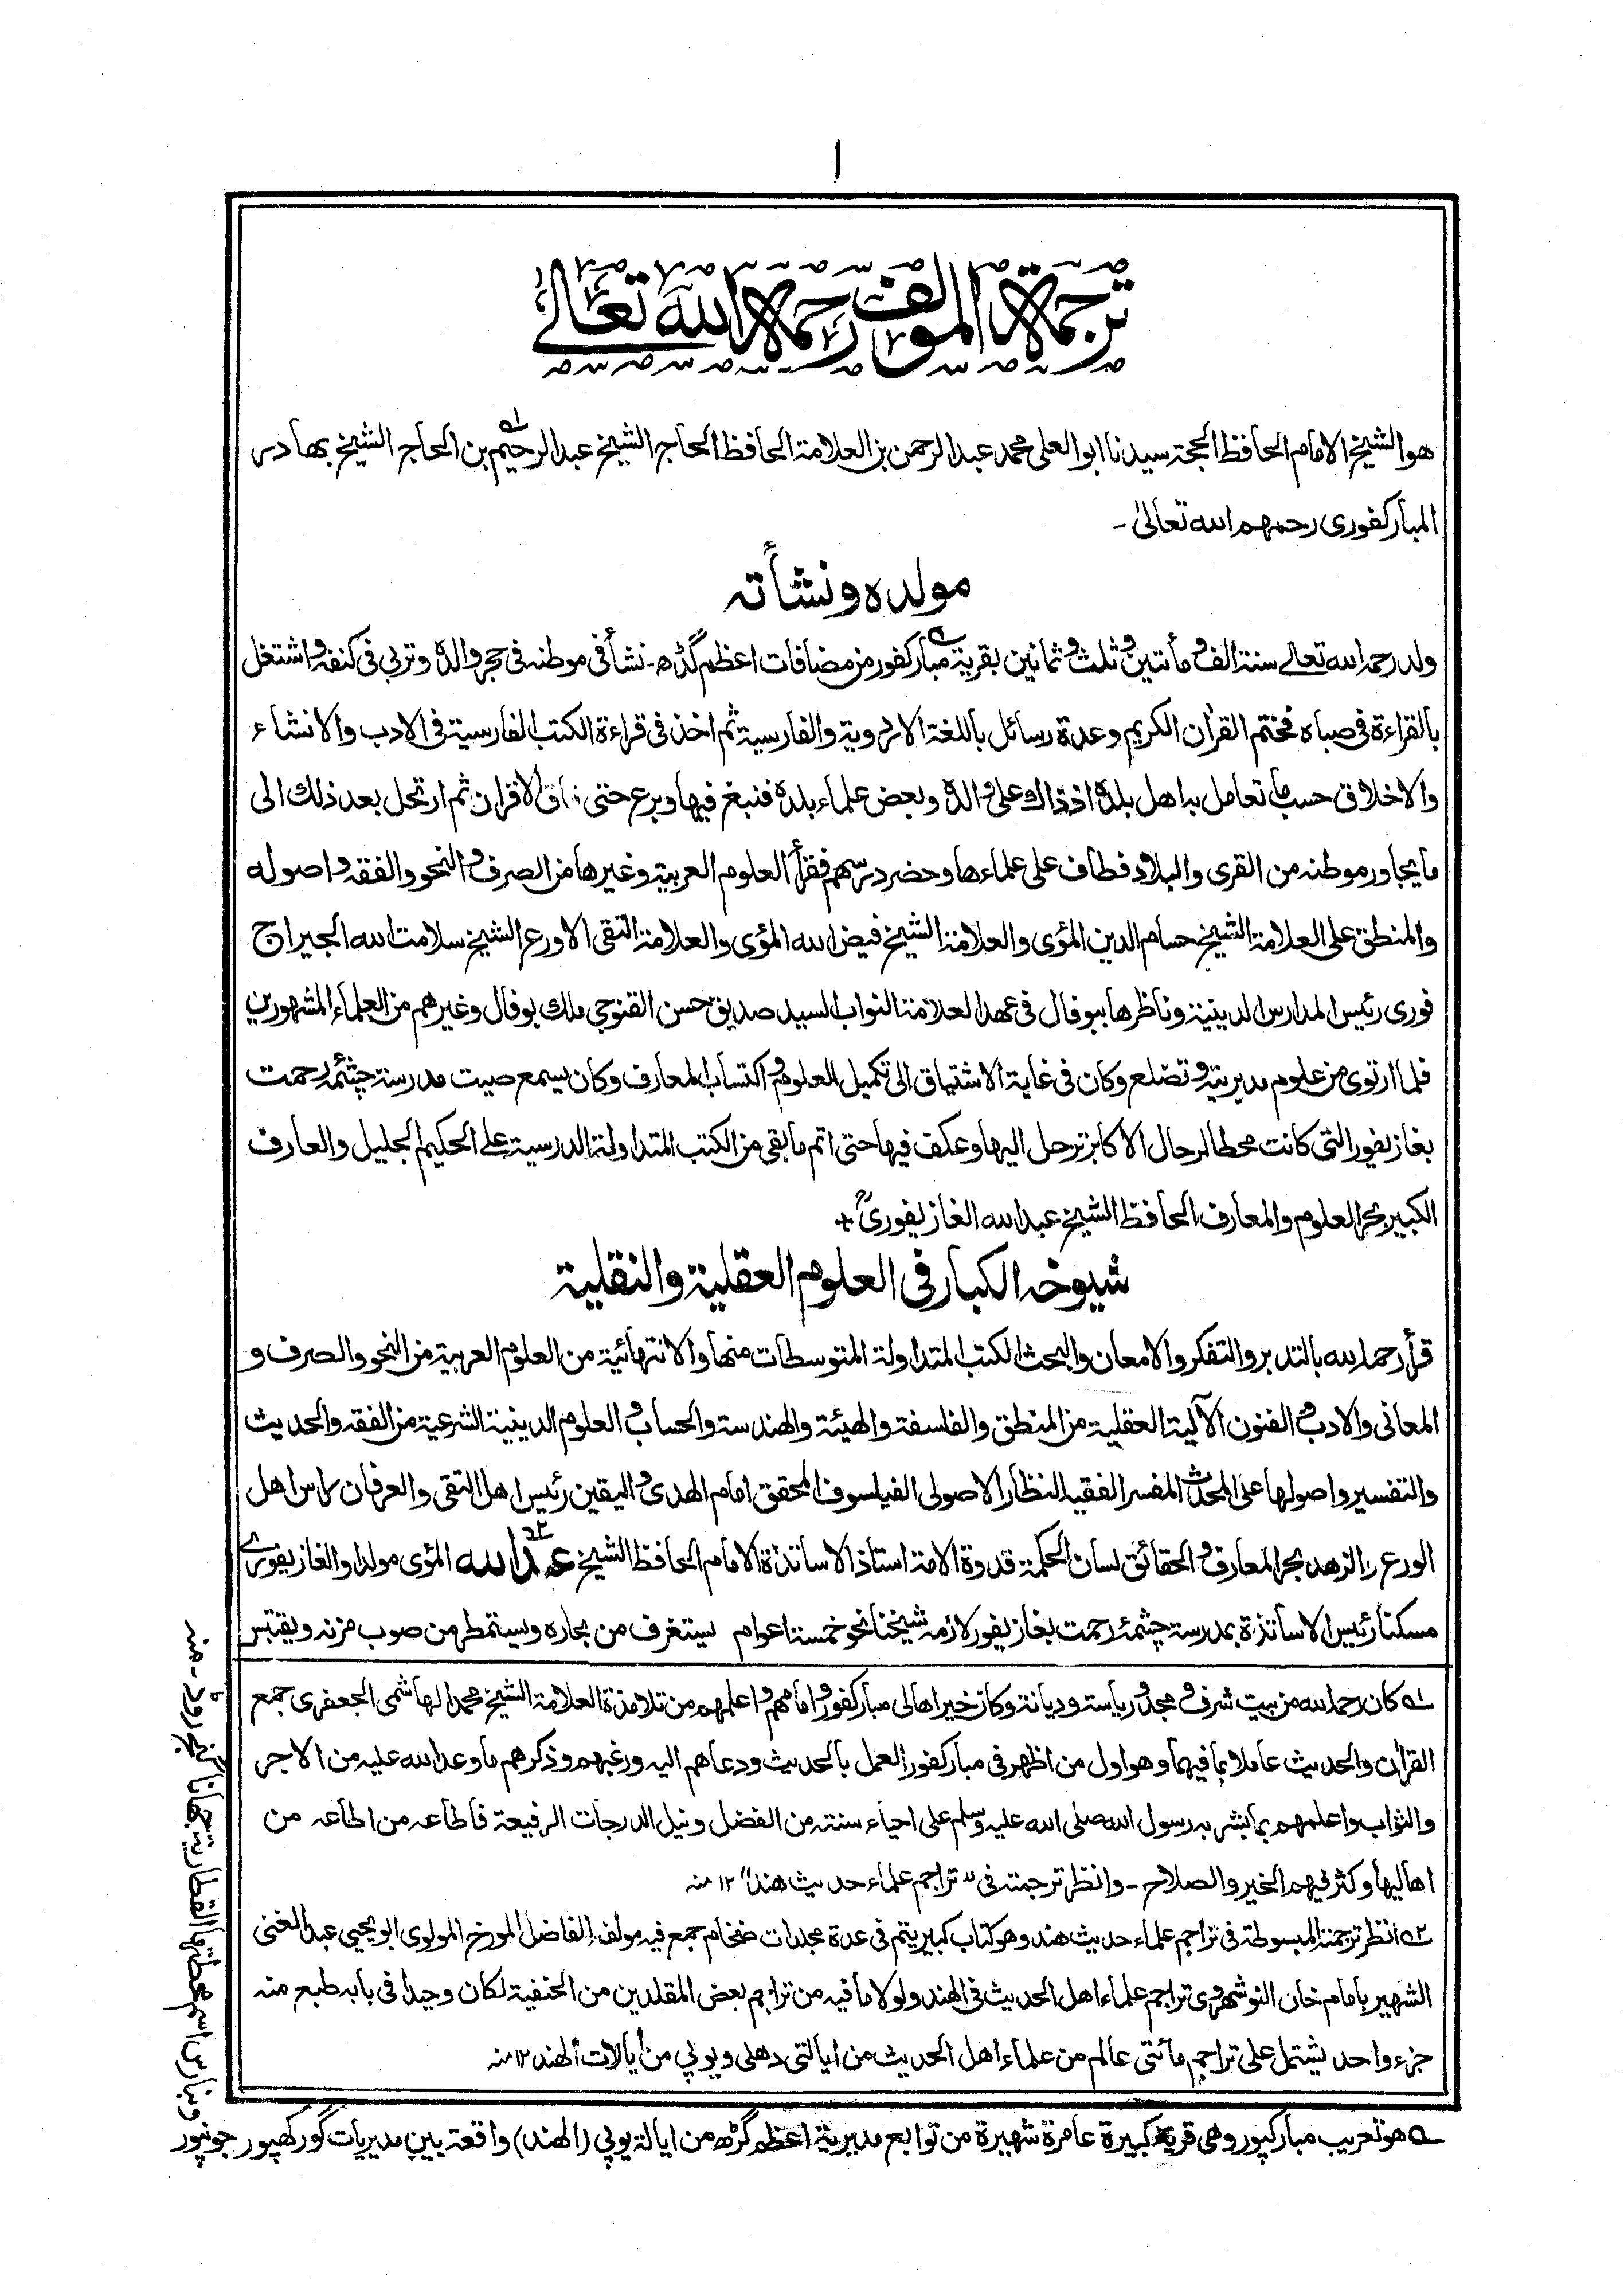 ١
ترجمة المؤلف رحمه الله تعالى
هو الشيخ الامام الحافظ الحجة سيدنا ابو العلى محمد عبد الرحمن بن العلامة الحافظ الحاج الشيخ عبد الرحيم بن الحاج الشيخ بهادر
المباركفوري رحمهم الله تعالىٰ -
مولده ونشأته
ولد رحمه الله تعالے سنة الف ومأتين وثلث وثمانين بقرية مباركفور من مضافات اعظم گڈھ - نشأ في موطنه في حجر والده وتربي في كنفه واشتغل
بالقراءة في صباه فختم القراٰن الكريم وعدة رسائل باللغة الاردوية والفارسية ثم اخذ في قراءة الكتب الفارسية في الادب والانشاء
والاخلاق حسب ما تعامل به اهل بلده اذ ذاك على والده وبعض علماء بلده فنبغ فيها وبرع حتى فاق الاقران ثم ارتحل بعد ذلك الى
ما يجاور موطنه من القرى والبلاد فطاف على علماءها وحضر درسهم فقرأ العلوم العربية وغيرها من الصرف والنحو والفقه واصوله
والمنطق على العلامة الشيخ حسام الدين المؤى والعلامة الشيخ فيض الله المؤى والعلامة التقى الاورع الشيخ سلامت الله الجيراج
فورى رئيس المدارس الدينية وناظرها ببوفال في عهد العلامة النواب السيد صديق حسن القنوجي ملك بوفال وغيرهم من العلماء المشهورين
فلما ارتوى من علوم مديريته وتضلع وكان في غاية الاشتياق الى تكميل العلوم واكتساب المعارف وكان يسمع صيت مدرسة چشمۂ رحمت
بغازيفور التي كانت محطا لرحال الاكابر ترحل اليها وعكف فيها حتى اتم ما بقي من الكتب المتداولة الدرسية على الحكيم الجليل والعارف
الكبير بحر العلوم والمعارف الحافظ الشيخ عبد الله الغازيفورىؒ +
شيوخه الكبار في العلوم العقلية والنقلية
قرأ رحمه الله بالتدبر والتفكر والامعان والبحث الكتب المتداولة المتوسطات منها والانتهائية من العلوم العربية من النحو والصرف و
المعاني والادب والفنون الآلية العقلية من المنطق والفلسفة والهيئة والهندسة والحساب والعلوم الدينية الشرعية من الفقه والحديث
والتفسير واصولها على المحدث المفسر الفقيه النظار الاصولى الفيلسوف المحقق امام الهدى واليقين رئيس اهل التقى والعرفان راس اهل
الورع والزهد بحر المعارف والحقائق لسان الحكمة قدوة الامة استاذ الاساتذة الامام الحافظ الشيخ عبد الله المؤى مولدا والغازيفورے
مسكنا رئيس الاساتذة بمدرسة چشمۂ رحمت بغازيفور لازمه شيخنا نحو خمسة اعوام يستغرف من بحاره ويستمطر من صوب مزنه ويقتبس
ل١ كان رحمه الله من بيت شرف ومجد ورياسة وديانة وكان خير اهالى مباركفور وامامهم واعلمهم من تلامذة العلامة الشيخ محمد الهاشمى الجعفرى جمع
القراٰن والحديث عاملا بما فيهما وهو اول من اظهر في مباركفور العمل بالحديث ودعاهم اليه ورغبهم وذكرهم ما وعد الله عليه من الاجر
والثواب واعلمهم بما بشر به رسول الله صلى الله عليه وسلم على احياء سنته من الفضل ونيل الدرجات الرفيعة فاطاعه من اطاعه من
اهاليها وكثر فيهم الخير والصلاح - وانظر ترجمته في "تراجم علماء حديث هند" ١٢ منه
ل٢ انظر ترجمته المبسوطة في تراجم علماء حديث هند وهو كتاب كبير يتم في عدة مجلدات ضخام جمع فيه مولفه الفاضل المورخ المولوى ابو يحيي عبد الغنى
الشهير بامام خان النوشهروى تراجم علماء اهل الحديث في الهند ولولا ما فيه من تراجم بعض المقلدين من الحنفية لكان وحيدا في بابه طبع منه
جزء واحد يشتمل على تراجم مأتي عالم من علماء اهل الحديث من ايالتي دهلى ويوپي من ايالات الهند ١٢ منه
ل هو تعريب مباركپور وهي قرية كبيرة عامرة شهيرة من توابع مديرية اعظم گڑھ من ايالة يوپي (الهند) واقعة بين مديريات گوركھپور جونپور
وبنارس اسم محطتها القطارية جهاناگنج روڈ - منه